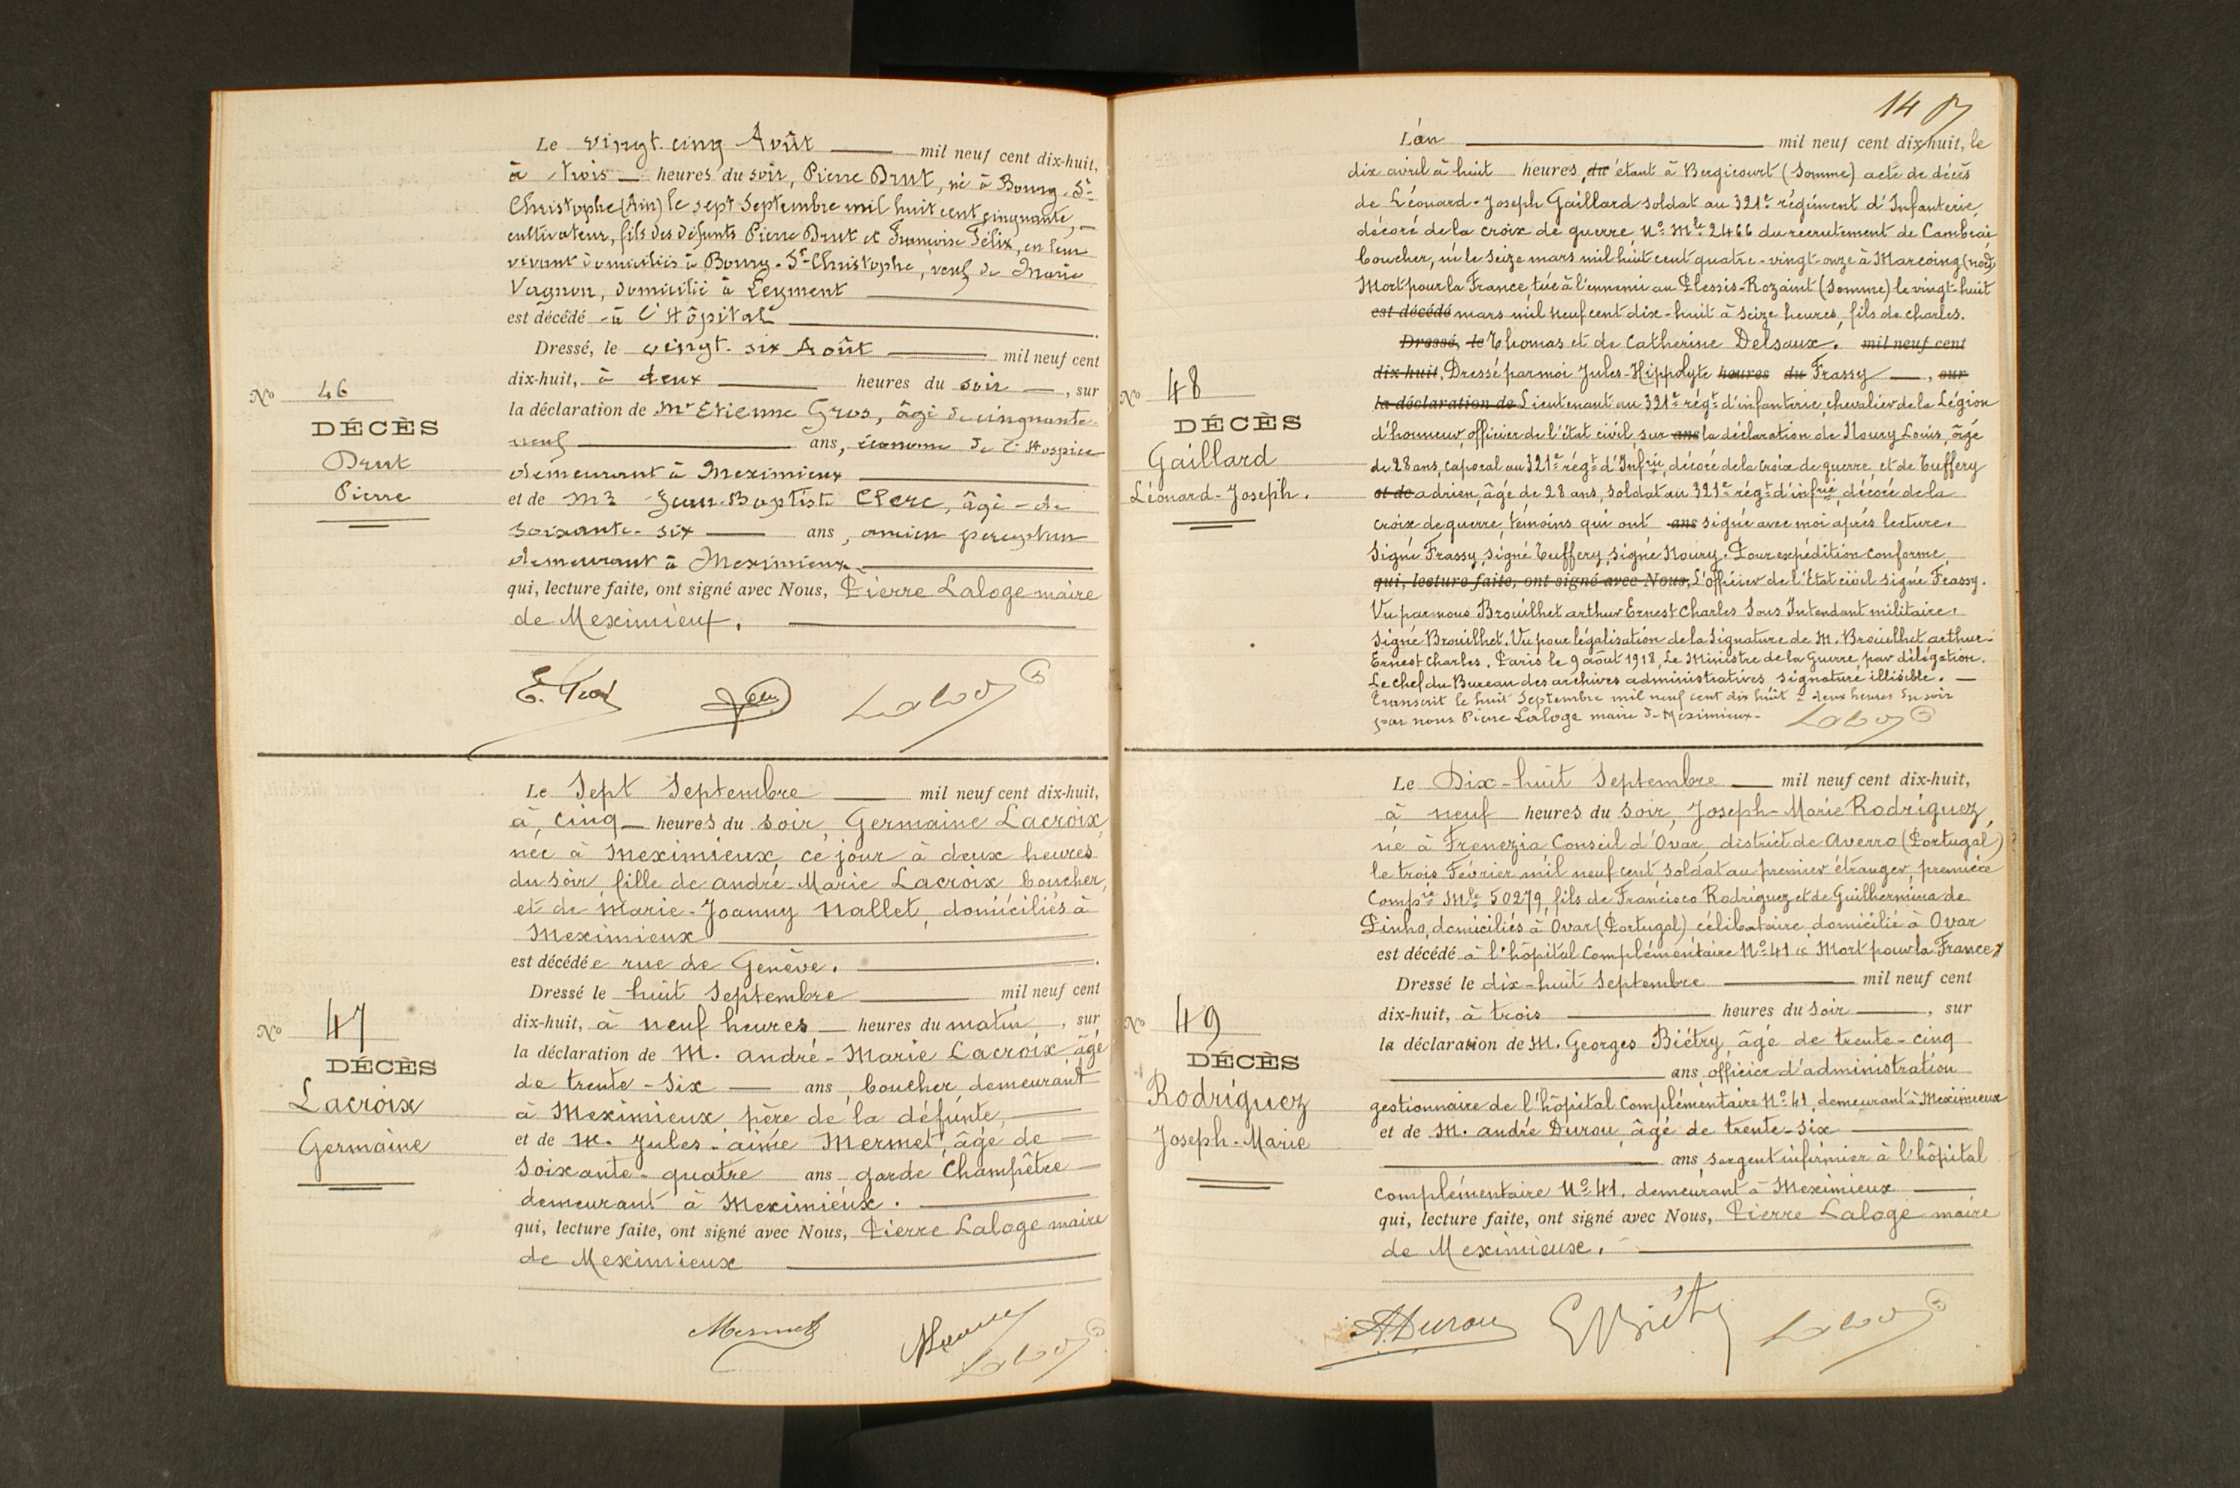 Le vingt-cinq Août mil neuf cent dix-huit,
à trois heures du soir, Pierre Drut, né à Bourg-St-
Christophe (Ain) le sept Septembre mil huit cent cinquante,
cultivateur, fils des défunts Pierre Drut et Françoise Félix, en leur
vivant domiciliés à Bourg-St-Christophe, veuf de Marie
Vagnon, domicilié à Leyment
est décédé à l'Hôpital
Dressé, le vingt-six Août mil neuf cent
dix-huit, à deux heures du soir, sur
la déclaration de Mr Etienne Gros, âgé de cinquante-
neuf ans, économe de l'Hospice
demeurant à Meximieux
et de Mr Jean-Baptiste Clerc, âgé de
soixante-six ans, ancien percepteur
demeurant à Meximieux
qui, lecture faite, ont signé avec Nous, Pierre Laloge maire
de Meximieux.
No 46
DÉCÈS
Drut
Pierre
Le Sept Septembre mil neuf cent dix-huit,
à, cinq heures du soir, Germaine Lacroix,
née à Meximieux ce jour à deux heures
du soir, fille de André-Marie Lacroix, boucher,
et de Marie-Joanny Nallet, domiciliés à
Meximieux
est décédée rue de Genève.
Dressé le huit Septembre mil neuf cent
dix-huit, à neuf heures heures du matin, sur
la déclaration de M. André-Marie Lacroix, âgé
de trente-six ans, boucher demeurant
à Meximieux, père de la défunte,
et de M. Jules-aimé Mermet, âgé de
Soixante-quatre ans garde Champêtre
demeurant à Meximieux.
qui, lecture faite, ont signé avec Nous, Pierre Laloge maire
de Meximieux
No 47
DÉCÈS
Lacroix
Germaine
Mermet
14
L'an mil neuf cent dix huit, le
dix avril à huit heures, du étant à Bergicourt (Somme) acte de décès
de Léonard-Joseph Gaillard soldat au 321e régiment d'Infanterie,
décoré de la croix de guerre, No Mle 2466 du recrutement de Cambrai
boucher, né le seize mars mil huit cent quatre-vingt-onze à Marcoing (nord)
Mort pour la France, tué à l'ennemi au Plessis-Rozaint (Somme) le vingt-huit
est décédé mars mil neuf cent dix-huit à seize heures, fils de Charles.
Dressé, le Thomas et de Catherine Delsaux. mil neuf cent
dix-huit, Dressé par moi Jules-Hippolyte heures du Frassy, sur
la déclaration de Lieutenant au 321e régt d'infanterie, chevalier de la Légion
d'honneur, officier de l'état civil, sur ans la déclaration de Noury Louis, âgé
de 28 ans, caporal au 321e régt d'Infrie, décoré de la croix de guerre, et de Tuffery
et de adrien, âgé de 28 ans, soldat au 321e régt d'infrie, décoré de la
croix de guerre, témoins qui ont ans signé avec moi après lecture.
Signé Frassy, signé Tuffery, signé Noury. Pour expédition conforme,
qui, lecture faite, ont signé avec Nous, L'officier de l'état civil signé Frassy.
Vu par nous Brouilhet arthur Ernest Charles Sous Intendant militaire.
Signé Brouilhet. Vu pour légalisation de la signature de M. Brouilhet arthur-
Ernest Charles. Paris le 9 août 1918, Le Ministre de la Guerre, par délégation.
Le chef du Bureau des archives administratives signature illisible.
Transcrit le huit Septembre mil neuf cent dix huit à deux heures du soir
par nous Pierre Laloge maire de Meximieux
No 48
DÉCÈS
Gaillard
Léonard-Joseph.
Le Dix-huit Septembre mil neuf cent dix-huit,
à neuf heures du soir, Joseph-Marie Rodriguez,
né à Frenezia Conseil d'Ovar, district de Averro (Portugal)
le trois Février mil neuf cent, soldat au premier étranger, première
Compie Mle 50279, fils de Francisco Rodriguez et de Guilhermina de
Pinho, domiciliés à Ovar (Portugal) célibataire, domicilié à Ovar
est décédé à l'hôpital Complémentaire No 41 « Mort pour la France »
Dressé le dix-huit Septembre mil neuf cent
dix-huit, à trois heures du soir, sur
la déclaration de M. Georges Biétry, âgé de trente-cinq
ans, officier d'administration
gestionnaire de l'hôpital Complémentaire No 41, demeurant à Meximieux
et de M. André Durou, âgé de trente-six
ans, sergent infirmier à l'hôpital
Complémentaire No 41, demeurant à Meximieux
qui, lecture faite, ont signé avec Nous, Pierre Laloge maire
de Meximieux.
No 49
DÉCÈS
Rodriguez
Joseph-Marie
A. Durou